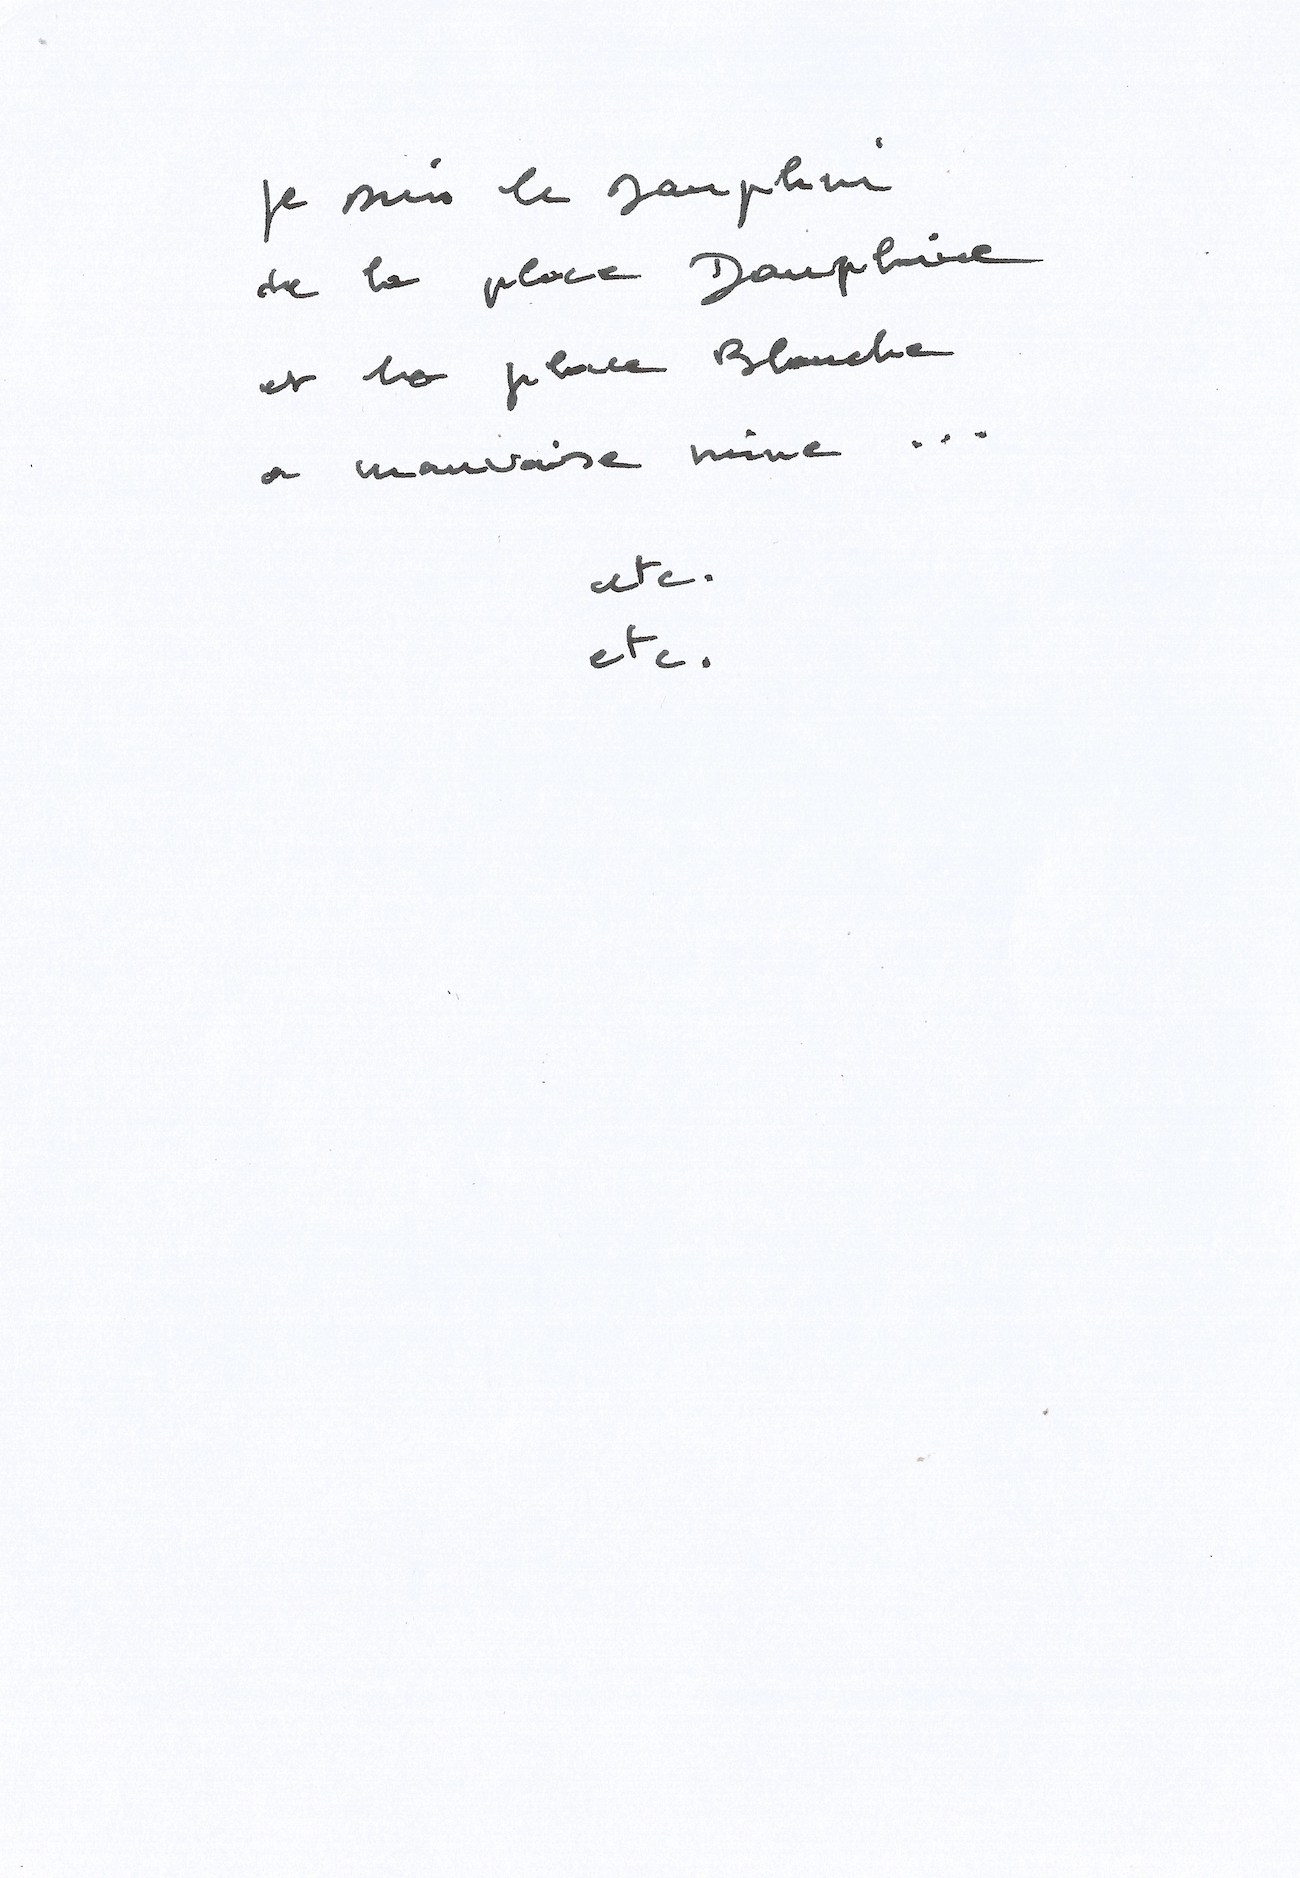 je suis le dauphin
de la place Dauphine
et la place Blanche
a mauvaise mine ...
etc.
etc.